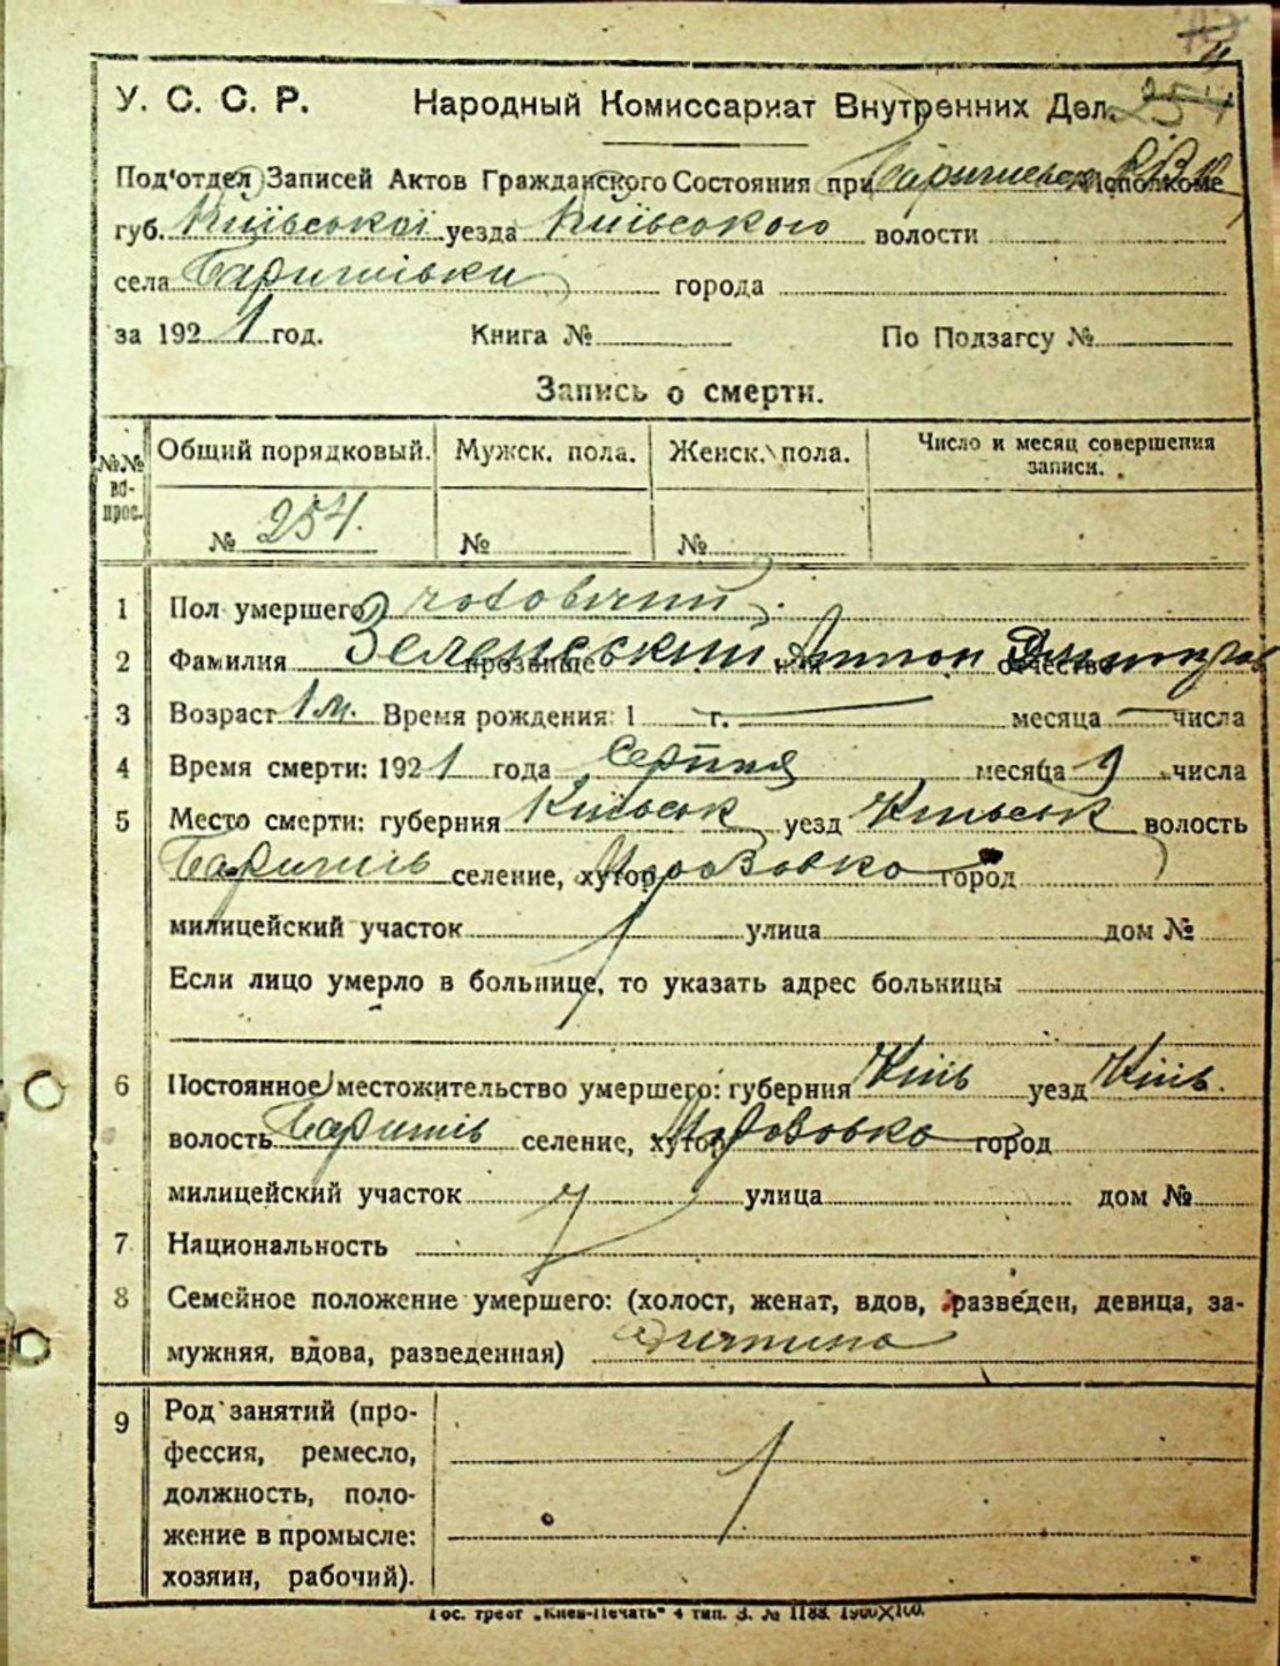 У. С. С. Р. Народный Комиссариат Внутренних Дел. 254
Под'отдел Записей Актов Гражданского Состояния при Исполкоме
губ. Київської уезда Київського волости
села Баришівки города
за 1921 год. Книга № По Подзагсу №
Запись о смерти.
№№ во-прос. Общий порядковый. Мужск. пола. Женск. пола. Число и месяц совершения записи.
№ 254. № №
1 Пол умершего чоловічий
2 Фамилия Зеленський прозвище или Антон отчество
3 Возраст 1 м. Время рождения: 1 г. месяца числа
4 Время смерти: 1921 года Серпня месяца 9 числа
5 Место смерти: губерния Київськ уезд Київськ волость
Баришів селение, хутор город
милицейский участок улица дом №
Если лицо умерло в больнице, то указать адрес больницы
6 Постоянное местожительство умершего: губерния Київ уезд Київ.
волость Баришів селение, хутор город
милицейский участок улица дом №
7 Национальность
8 Семейное положение умершего: (холост, женат, вдов, разведен, девица, за-
мужняя, вдова, разведенная) Дитина
9 Род занятий (про-
фессия, ремесло,
должность, поло-
жение в промысле:
хозяин, рабочий).
Гос. трест „Киев-Печать" 4 тип. З. № 1188. 1900×100.